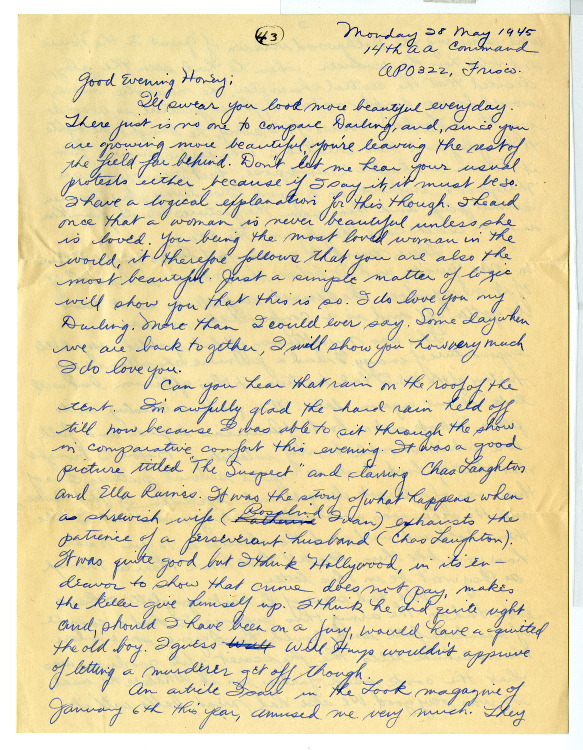 43
Monday 28 May 1945
14th AA Command
APO 322, Frisco.
Good Evening Honey;
I'll swear you look more beautiful everyday.
There just is no one to compare Darling, and, since you
are growing more beautiful, you're leaving the rest of
the field far behind. Don't let me hear your usual
protests either because if I say it, it must be so.
I have a logical explanation for this though. I heard
once that a woman is never beautiful unless she
is loved. You being the most loved woman in the
world, it therefore follows that you are also the
most beautiful. Just a simple matter of logic
will show you that this is so. I do love you my
Darling. More than I could ever say. Some day when
we are back together, I will show you how very much
I do love you.
Can you hear that rain on the roof of the
tent. I'm awfully glad the hard rain held off
till now because I was able to sit through the show
in comparative comfort this evening. It was a good
picture titled "The Suspect" and starring Chas Laughton
and Ella Raines. It was the story of what happens when
a shrewish wife (Katherine Rosalind Ivan) exhausts the
patience of a perseverant husband (Chas Laughton).
It was quite good but I think Hollywood, in its en-
deavor to show that crime does not pay, makes
the killer give himself up. I think he did quite right
and, should I have been on a jury, would have acquitted
the old boy. I guess Will Hays wouldn't approve
of letting a murderer get off though.
An article I saw in the Look magazine of
January 6th this year, amused me very much. They